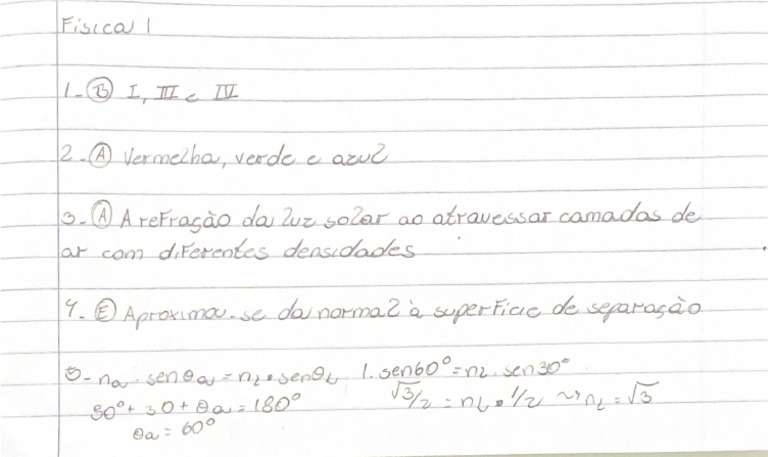 Física 1
1- (B) I, III e IV
2- (A) Vermelha, verde e azul
3- (A) A refração da luz solar ao atravessar camadas de
ar com diferentes densidades
4. (E) Aproxima-se da normal à superfície de separação
5- na . sen θa = nL . sen θL 1. sen60° = nL . sen 30°
90° + 30 + θa = 180° √3/2 = nL . 1/2 ~> nL = √3
θa = 60°